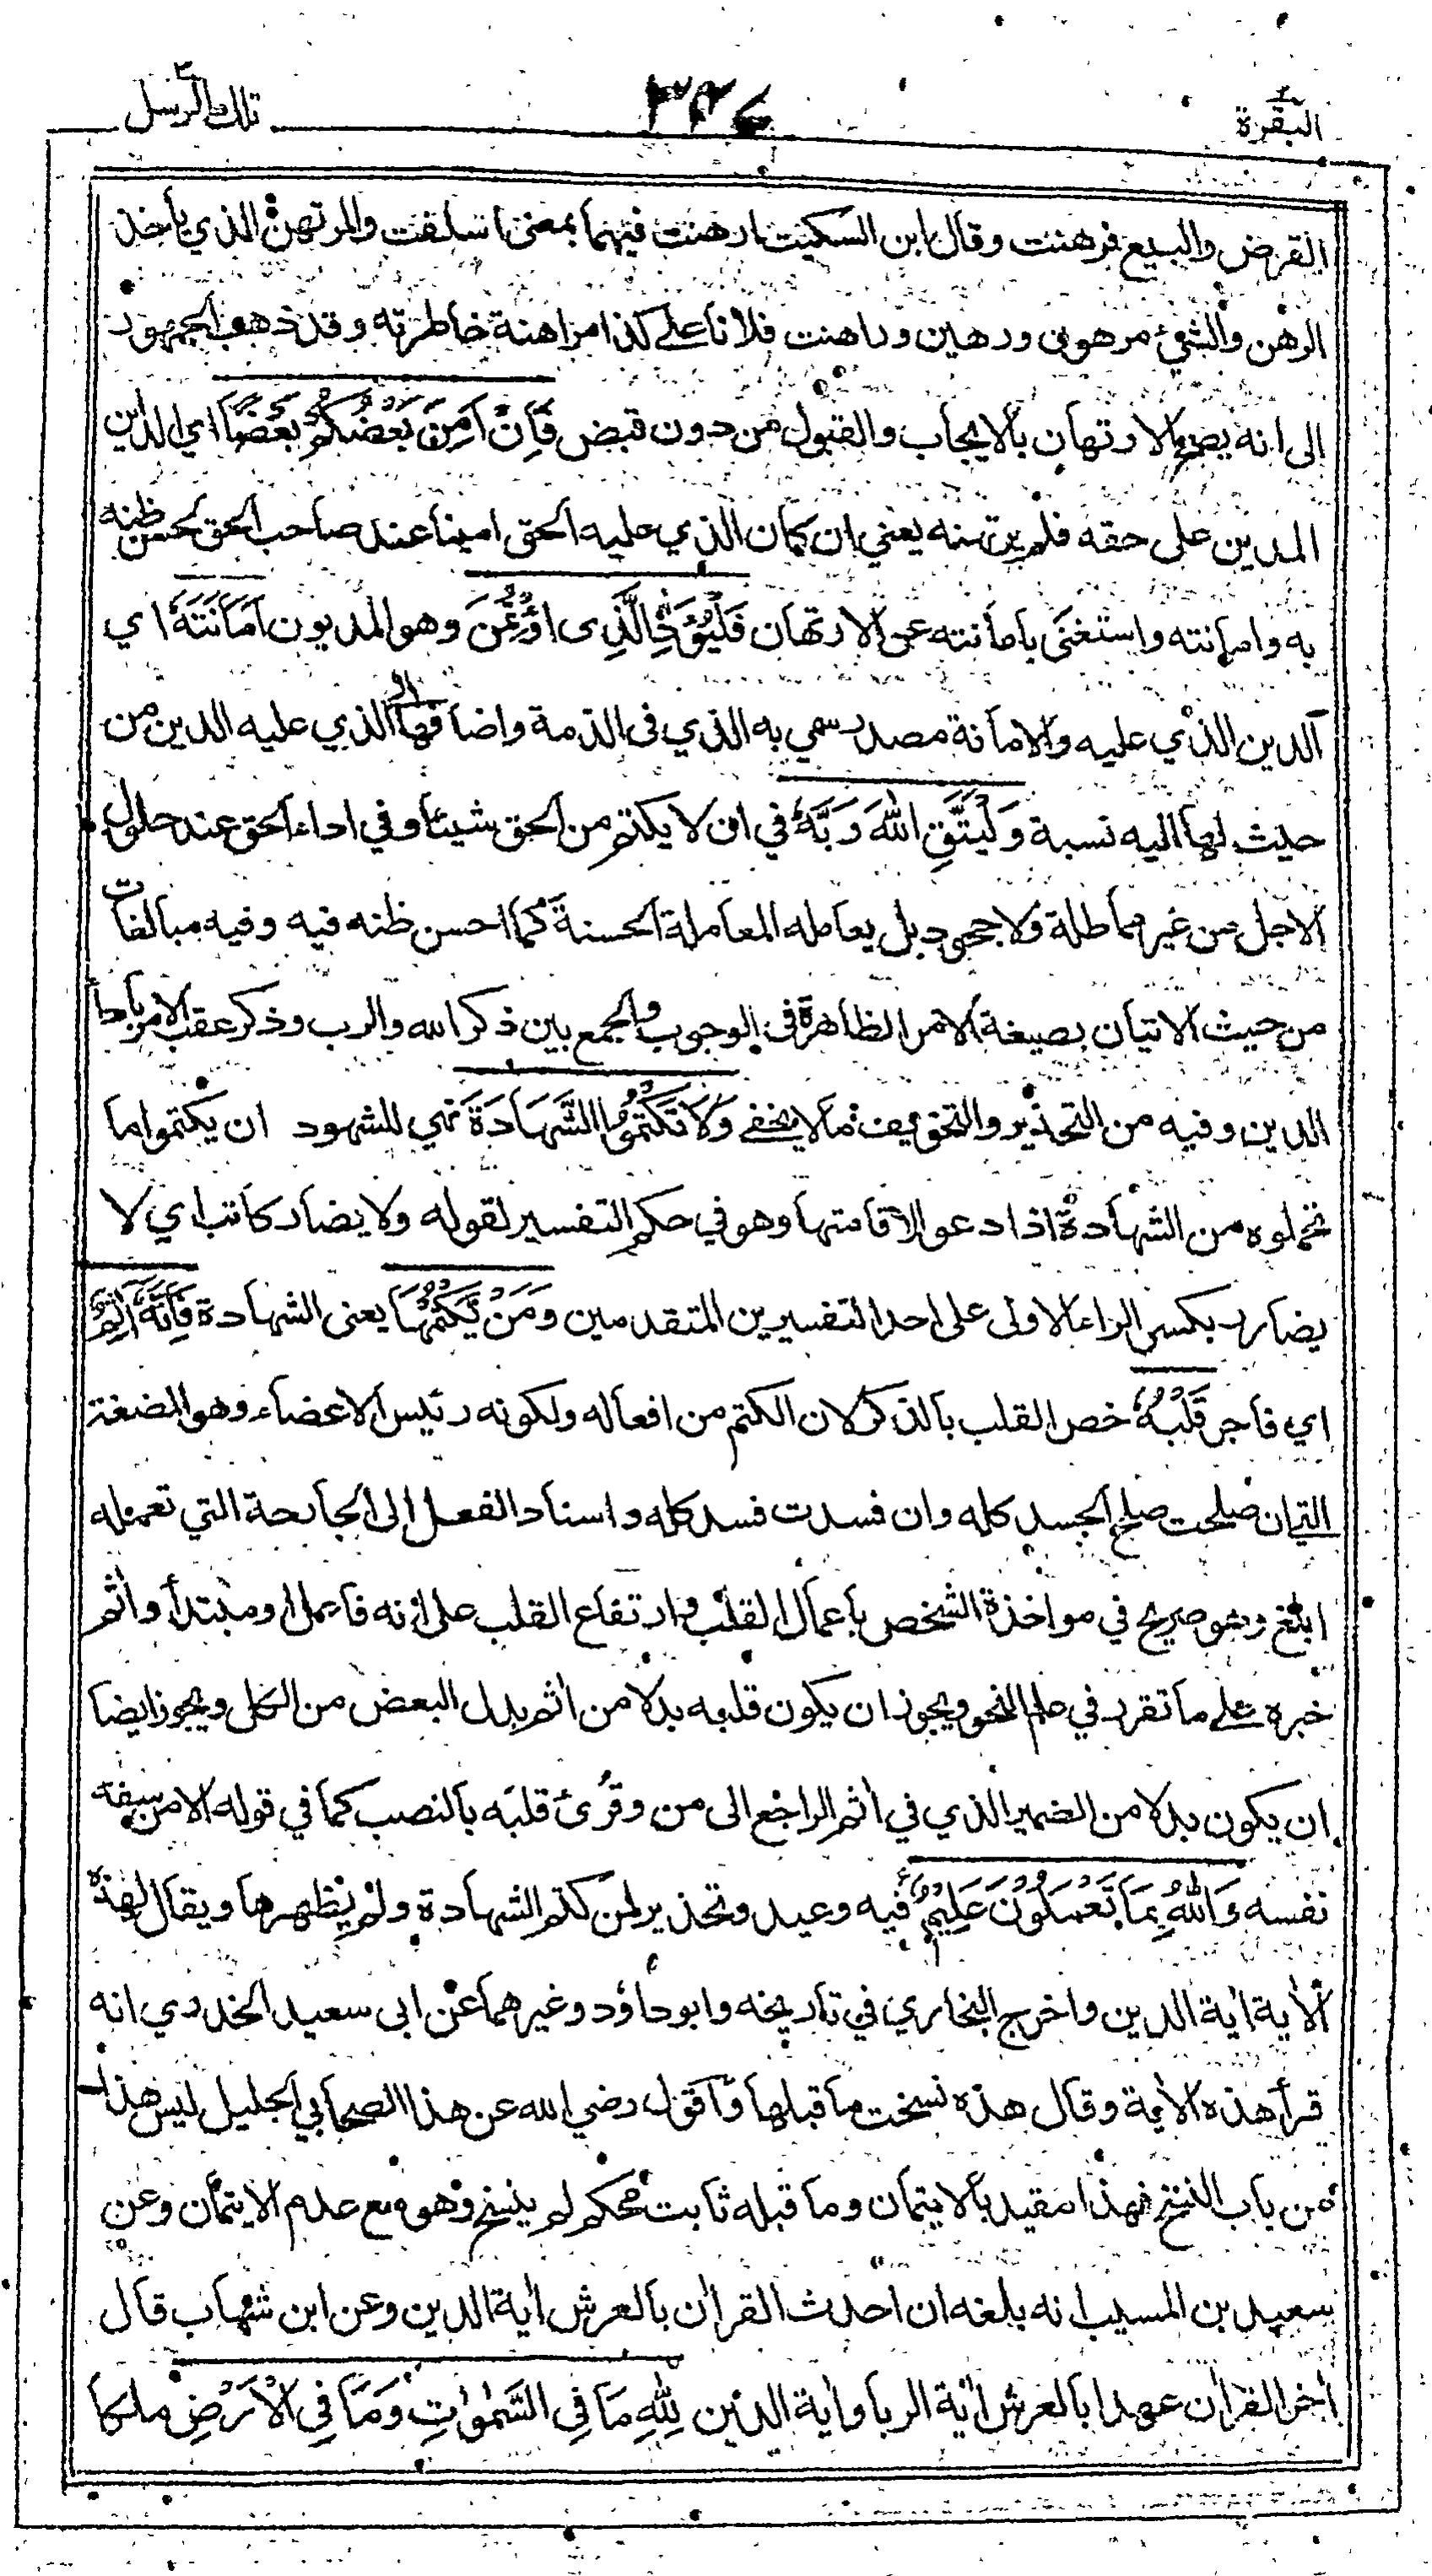 البقرة ٢
تلك الرسل ٣
القرض والبيع فرهنت وقال ابن السكيت ارهنت فيهما بمعنى اسلفت والمرتهن الذي يأخذ
الرهن والشيء مرهون ورهين وراهنت فلانا على كذا مراهنة خاطرته وقد ذهب الجمهور
الى انه يصح الارتهان بالايجاب والقبول من دون قبض فَاِنْ اَمِنَ بَعْضُكُمْ بَعْضًا اي الدائن
المدين على حقه فلم يرتهنه يعني ان كان الذي عليه الحق امينا عند صاحب الحق لحسن ظنه
به وامانته واستغنى بامانته عن الارتهان فَلْيُؤَدِّ الَّذِى اؤْتُمِنَ وهو المديون اَمَانَتَهٗ اي
الدين الذي عليه والامانة مصدر سمي به الذي في الذمة واضافها الى الذي عليه الدين من
حيث لها اليه نسبة وَلْيَتَّقِ اللّٰهَ رَبَّهٗ في ان لا يكتم من الحق شيئا وفي اداء الحق عند حلول
الاجل من غير مماطلة ولا جحود بل يعامله المعاملة الحسنة كما احسن ظنه فيه وفيه مبالغات
من حيث الاتيان بصيغة الامر الظاهرة في الوجوب والجمع بين ذكر الله والرب وذكر عقب الامر باداء
الدين وفيه من التحذير والتخويف ما لا يخفى وَلَا تَكْتُمُوا الشَّهَادَةَ نهي للشهود ان يكتموا ما
تحملوه من الشهادة اذا دعوا لاقامتها وهو في حكم التفسير لقوله ولا يضار كاتب اي لا
يضارر بكسر الراء الاولى على احد التفسيرين المتقدمين وَمَنْ يَّكْتُمْهَا يعنى الشهادة فَاِنَّهٗٓ اٰثِمٌ
اي فاجر قَلْبُهٗ خص القلب بالذكر لان الكتم من افعاله ولكونه رئيس الاعضاء وهو المضغة
التي ان صلحت صلح الجسد كله وان فسدت فسد كله واسناد الفعل الى الجارحة التي تعمله
ابلغ وهو صريح في مواخذة الشخص باعمال القلب وارتفاع القلب على انه فاعل او مبتدأ واثم
خبره على ما تقرر في علم النحو ويجوز ان يكون قلبه بدلا من اثم بدل البعض من الكل ويجوز ايضا
ان يكون بدلا من الضمير الذي في اثم الراجع الى من وقرئ قلبه بالنصب كما في قوله الا من سفه
نفسه وَاللّٰهُ بِمَا تَعْمَلُوْنَ عَلِيْمٌ فيه وعيد وتحذير لمن كتم الشهادة ولم يظهرها ويقال لهذه
الاٰية اٰية الدين واخرج البخاري في تاريخه وابو داؤد وغيرهما عن ابى سعيد الخدري انه
قرأ هذه الاٰية وقال هذه نسخت ما قبلها واقول رضي الله عن هذا الصحابي الجليل ليس هذا
من باب النسخ فهذا مقيد بالايتمان وما قبله ثابت محكم لم ينسخ وهو مع عدم الايتمان وعن
سعيد بن المسيب انه بلغه ان احدث القراٰن بالعرش اٰية الدين وعن ابن شهاب قال
اٰخر القراٰن عهدا بالعرش اٰية الربا واٰية الدين لِلّٰهِ مَا فِى السَّمٰوٰتِ وَمَا فِى الْاَرْضِ ملكا